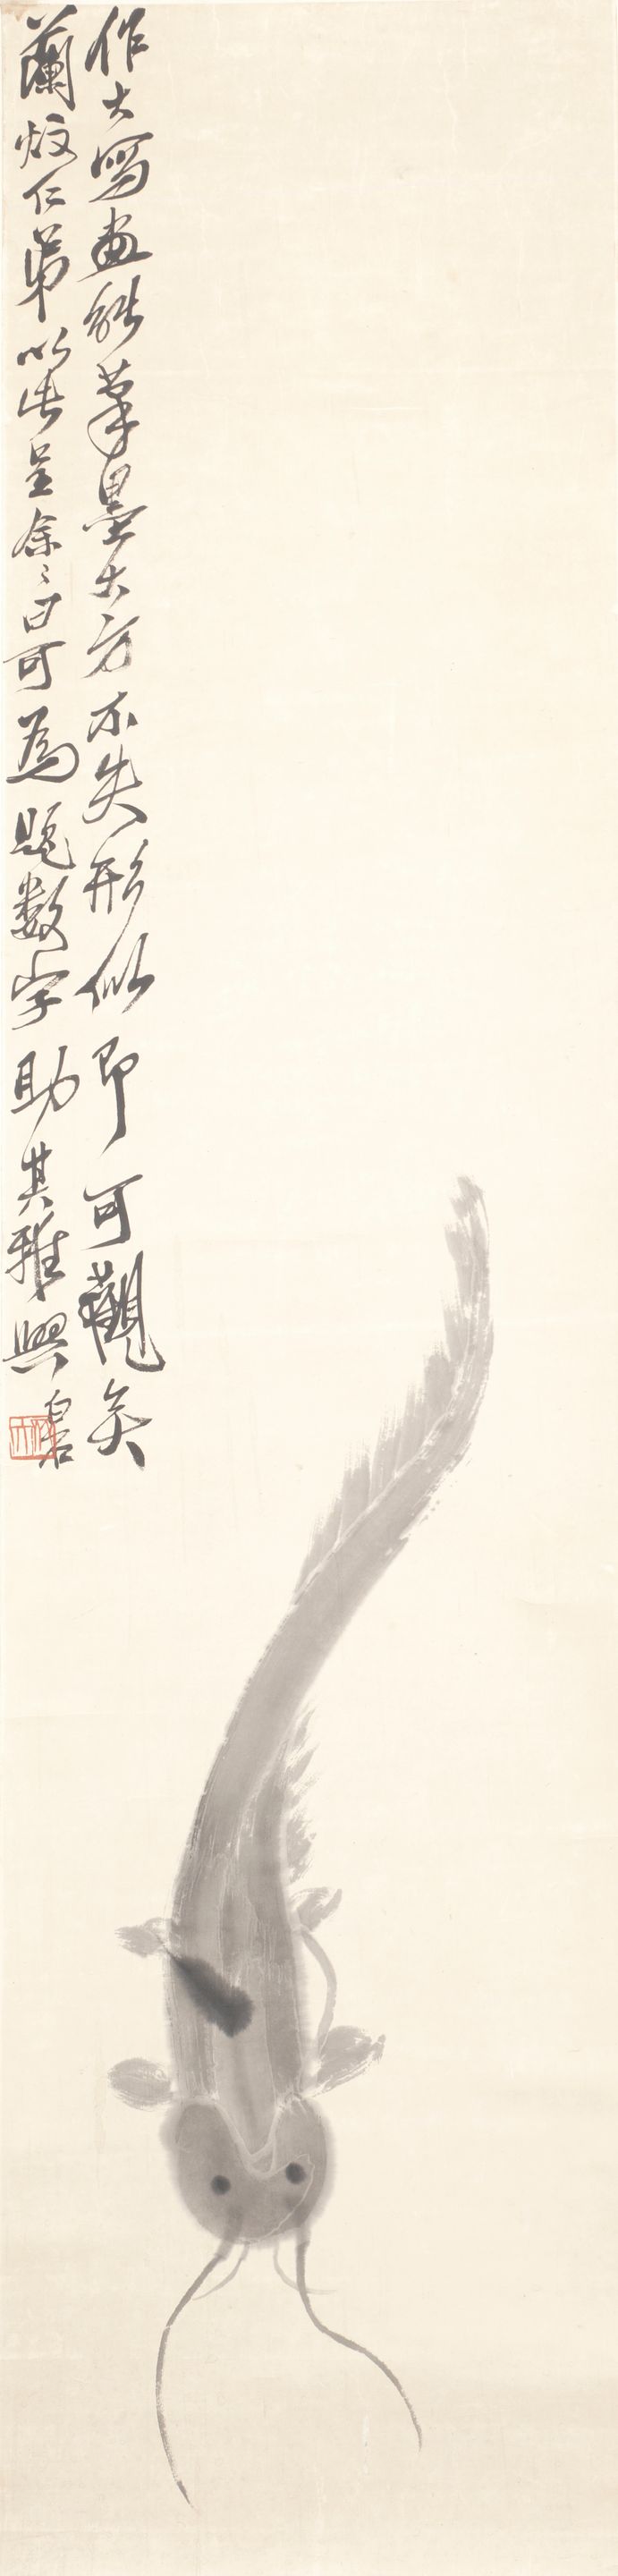 作大寫畫能筆墨大方不失形似即可觀矣
蘭炆仁弟以此呈余々曰可為題數字助其雅興白石